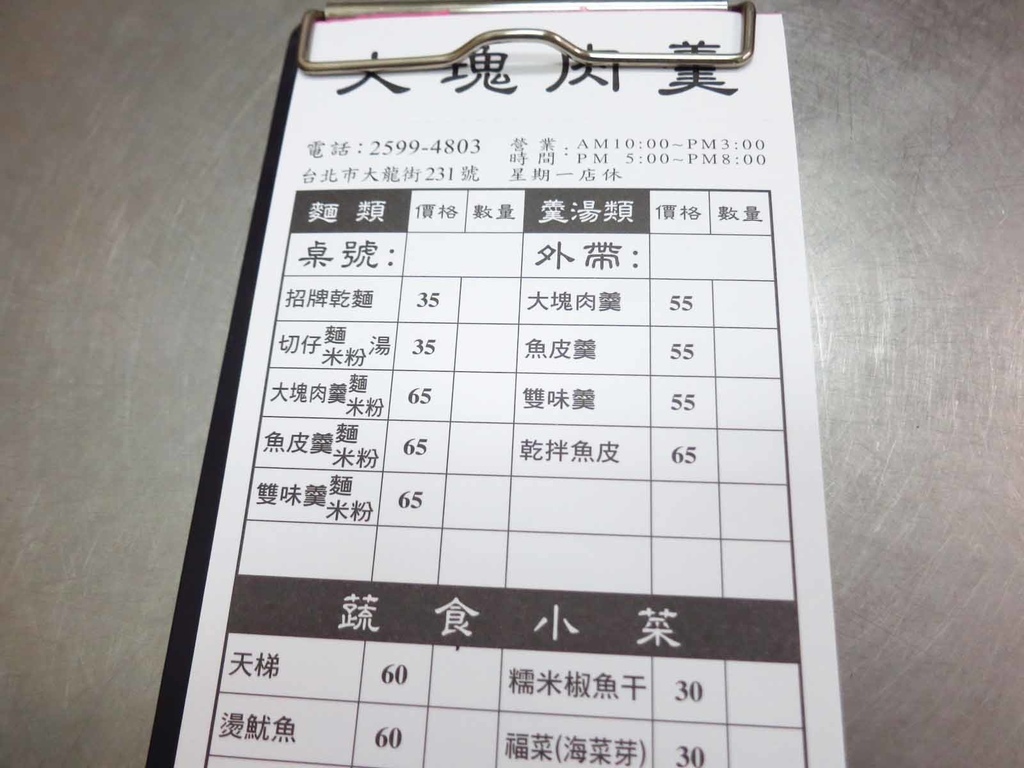 大塊肉羹
電話：2599-4803
台北市大龍街231號
營業時間：AM10:00~PM3:00
PM 5:00~PM8:00
星期一店休
麵類 價格 數量 羹湯類 價格 數量
桌號： 外帶：
招牌乾麵 35 大塊肉羹 55
切仔麵米粉湯 35 魚皮羹 55
大塊肉羹麵米粉 65 雙味羹 55
魚皮羹麵米粉 65 乾拌魚皮 65
雙味羹麵米粉 65
蔬食小菜
天梯 60 糯米椒魚干 30
燙魷魚 60 福菜(海菜芽) 30